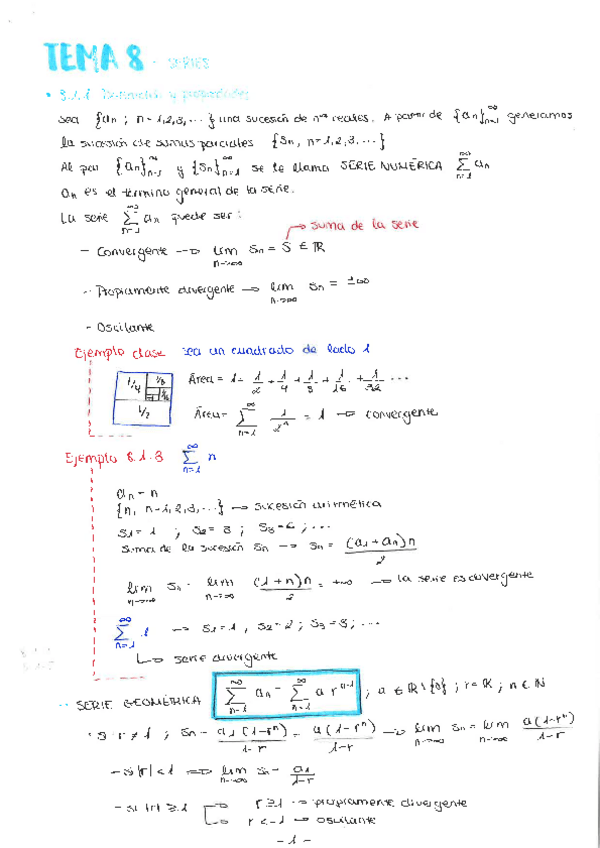 TEMA 8 - SERIES
• 8.1.1 Definición y propiedades
sea {an ; n = 1,2,3,...} una sucesión de nos reales. A partir de {an}∞n=1 generamos
la sucesión de sumas parciales {Sn, n=1,2,3,...}
Al par {an}∞n=1 y {Sn}∞n=1 se le llama SERIE NUMÉRICA ∞Σn=1 an
an es el término general de la serie.
La serie ∞Σn=1 an puede ser:
→ suma de la serie
- Convergente --> lim n→∞ Sn = S ∈ ℝ
- Propiamente divergente → lim n→∞ Sn = ±∞
- Oscilante
Ejemplo clase sea un cuadrado de lado 1
1/4 1/8 1/2
Área = 1 = 1/2 + 1/4 + 1/8 + 1/16 + 1/32 ...
Área = ∞Σn=1 1/2^n = 1 → convergente
Ejemplo 8.1.3 ∞Σn=1 n
an = n
{n, n=1,2,3,...} → sucesión aritmética
S1 = 1 ; S2 = 3 ; S3 = 6 ; ...
Suma de la sucesión Sn → Sn = (a1+an)n/2
lim n→∞ Sn = lim n→∞ (1+n)n/2 = +∞ → la serie es divergente
∞Σn=1 1 → S1=1, S2=2; S3=3; ...
↳ serie divergente
- SERIE GEOMÉRICA ∞Σn=1 an = ∞Σn=1 a r^n-1 ; a ∈ ℝ\{0} ; r = ℝ ; n ∈ ℕ
• si r ≠ 1 ; Sn = a1(1-r^n)/1-r = a(1-r^n)/1-r → lim n→∞ Sn = lim n→∞ a(1-r^n)/1-r
- si |r| < 1 ⟹ lim n→∞ Sn = a1/1-r
- si |r| ≥ 1 → r ≥ 1 → propiamente divergente
→ r < -1 → oscilante
- 1 -